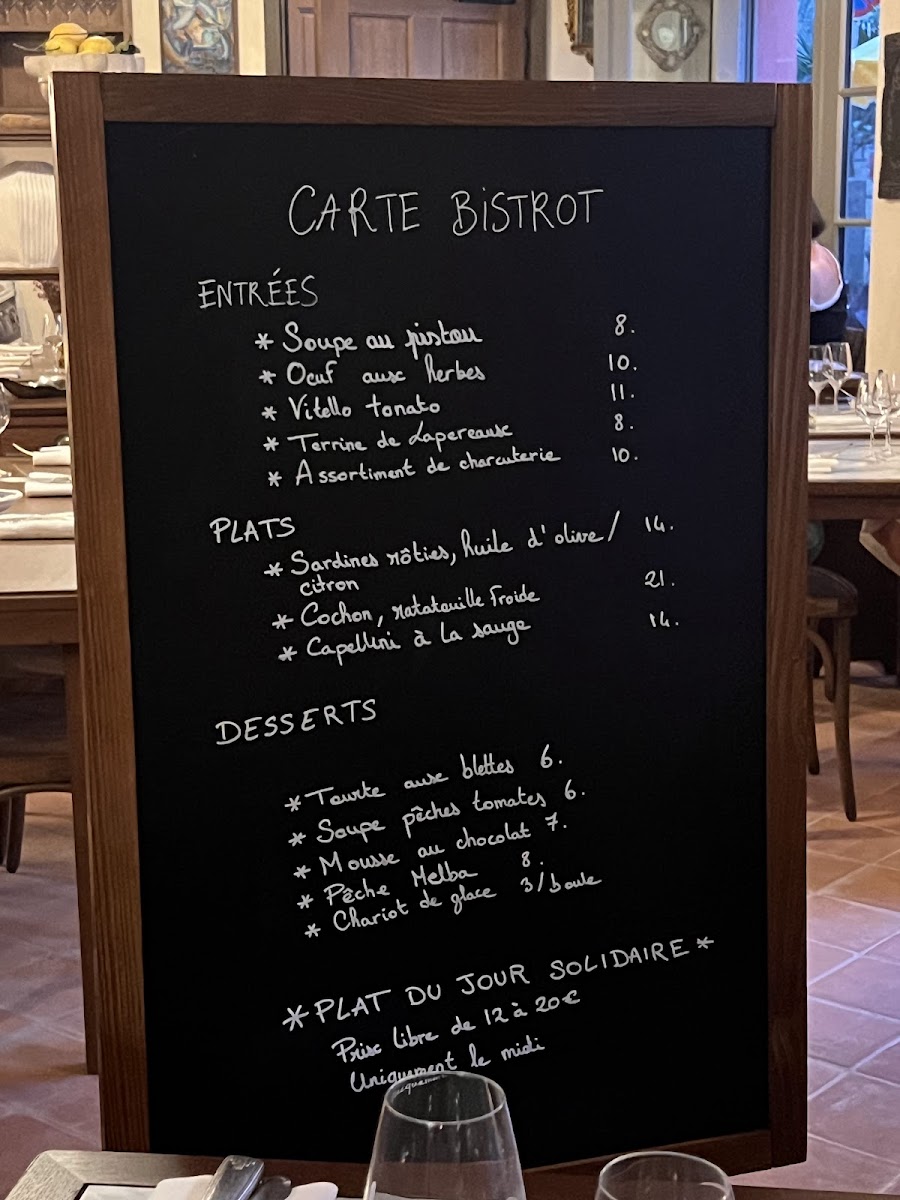 CARTE BISTROT
ENTRÉES
* Soupe au pistou 8.
* Oeuf aux herbes 10.
* Vitello tonato 11.
* Terrine de Lapereaux 8.
* Assortiment de charcuterie 10.
PLATS
* Sardines rôties, huile d'olive/ 14.
citron
* Cochon, ratatouille froide 21.
* Capellini à la sauge 14.
DESSERTS
* Tourte aux blettes 6.
* Soupe pêches tomates 6.
* Mousse au chocolat 7.
* Pêche Melba 8.
* Chariot de glace 3/boule
*PLAT DU JOUR SOLIDAIRE*
Prix libre de 12 à 20€
Uniquement le midi